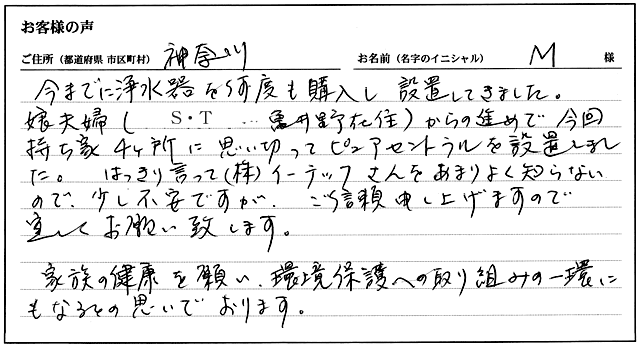 お客様の声
ご住所（都道府県 市区町村） 神奈川 お名前（名字のイニシャル） M 様
今までに浄水器を何度も購入し設置してきました。
娘夫婦（ S・T … 亀井野在住）からの進めで今回
持ち家4ヶ所に思い切ってピュアセントラルを設置しまし
た。 はっきり言って(株)イーテックさんをあまりよく知らない
ので、少し不安ですが、ご信頼申し上げますので
宜しくお願い致します。
家族の健康を願い、環境保護への取り組みの一環に
もなるとの思いでおります。